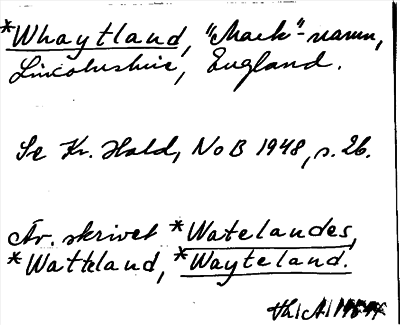 *Whaytland, "Mark"-namn,
Lincolnshire, England.
Se Kr. Hald, NoB 1948, s. 26.
Äv. skrivet *Watelandes,
*Watteland, *Wayteland.